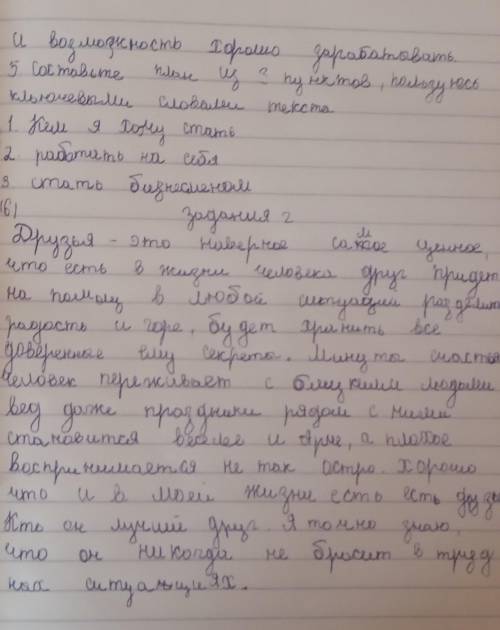 и возможность хорошо зарабатовать.
5 Составьте план из 3 пунктов, пользуюсь
ключевыми словами текста
1. Кем я хочу стать
2. работать на себя
3. стать бизнесменом
(6) задания 2
Друзья - это наверное самое ценное,
что есть в жизни человека друг придет
на помощ в любой ситуации разделит
радость и горе, будет хранить все
доверенные ему секреты. Минуты счастья
человек переживает с близким людьми
вед даже праздники рядом с ними
становится веселее и ярче, а плохое
воспринимается не так остро. Хорошо
что и в моей жизни есть есть друзья
Кто он лучший друг. Я точно знаю,
что он никогда не бросит в труд
ных ситуациях.